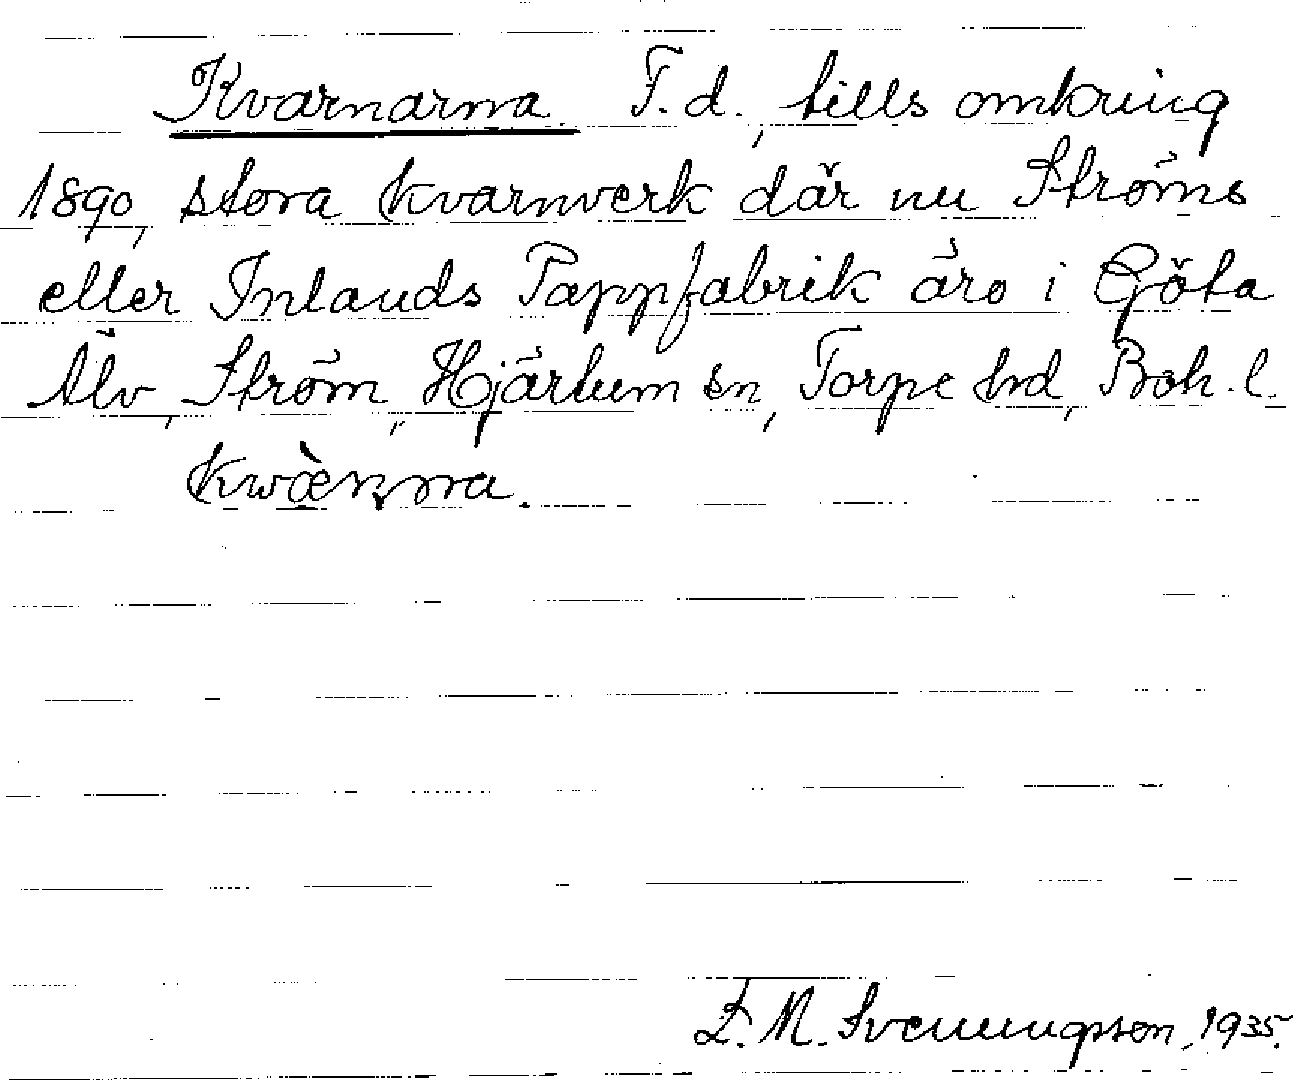 Kvarnarna. F.d., tills omkring
1890, stora kvarnverk där nu Ströms
eller Inlands Pappfabrik äro i Göta
Älv, Ström, Hjärtum sn, Torpe hd, Boh. l.
kwæ̀rṇa.
E. M. Svenungsson, 1935.